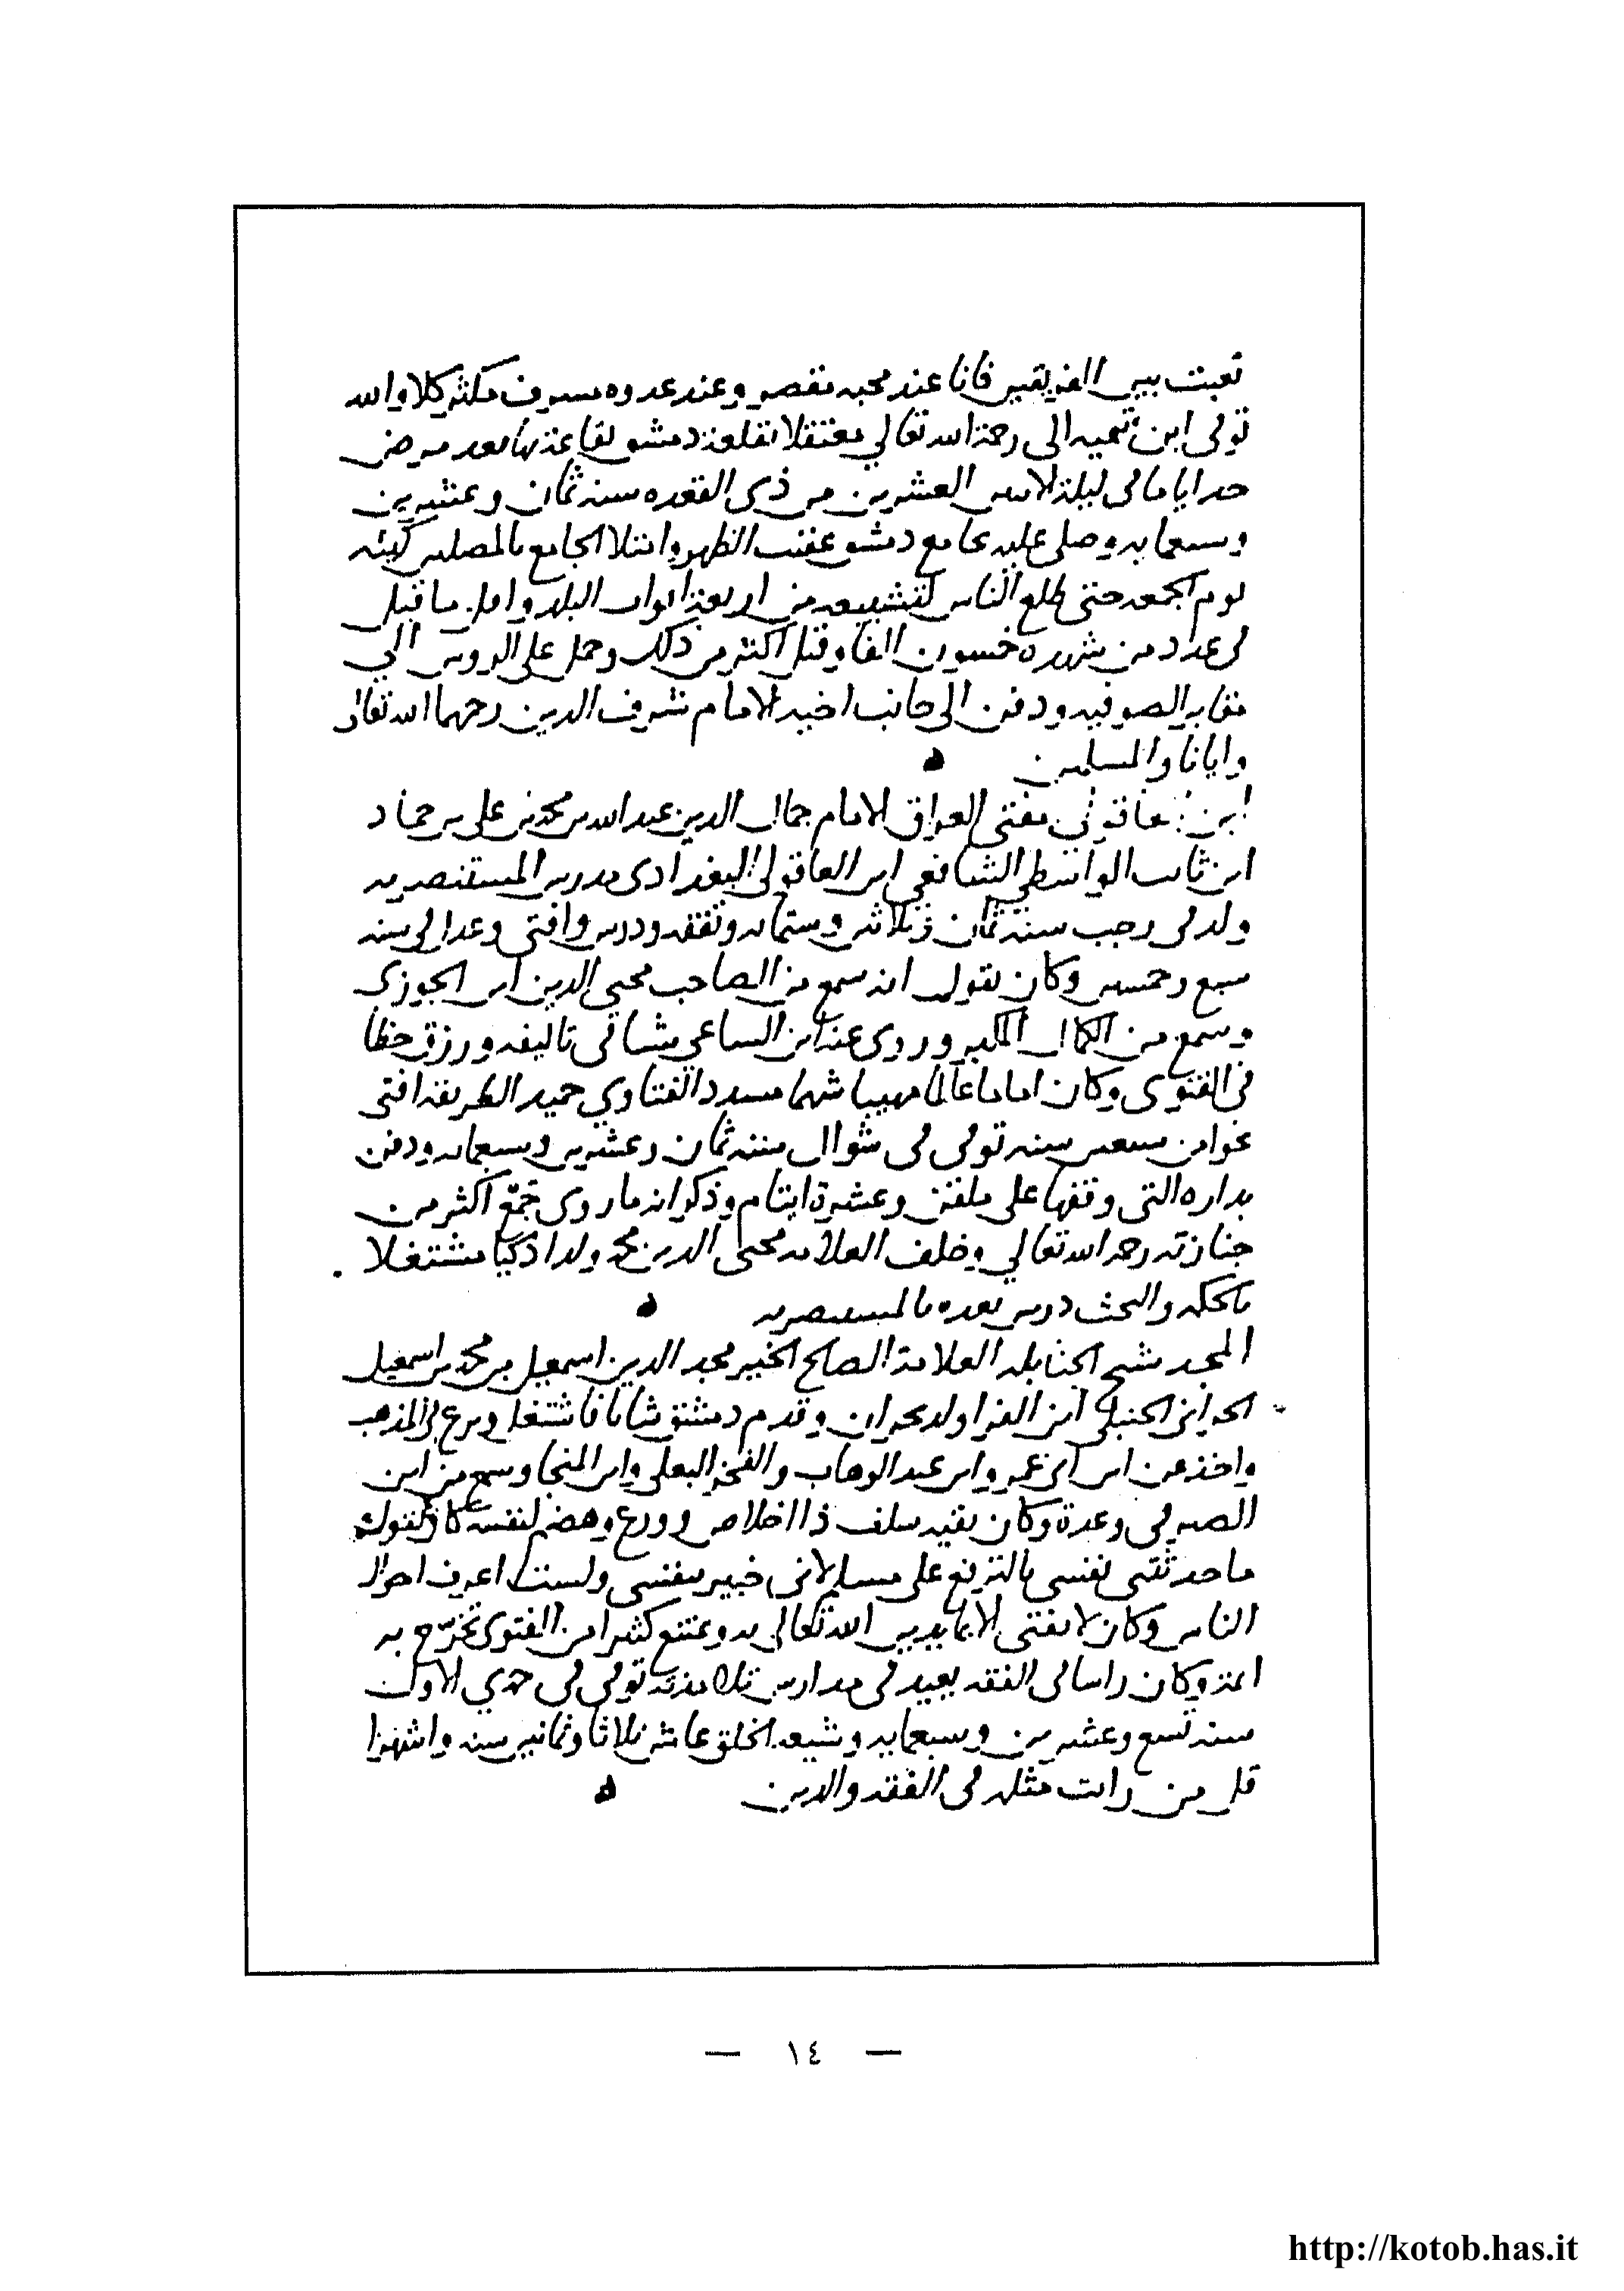 تعبت بين الفريقين فانا عند محبه مقصر وعند عدوه مسرف مكثر كلا والله
توفى ابن تيميه الى رحمة الله تعالي معتقلا بقلعة دمشق بقاعة بها بعد مرض
جد اياما في ليلة الاثنين العشرين من ذى القعده سنه ثمان وعشرين
وسبعمايه وصلى عليه بجامع دمشق عقيب الظهر وامتلا الجامع بالمصلين كهيئه
يوم الجمعه حتى طلع الناس لتشييعه من اربعة ابواب البلد واقل ما قيل
فى عدد من شهده خمسون الفا وقيل اكثر من ذلك وحمل على الروس الي
مقابر الصوفيه ودفن الى جانب اخيه الامام شرف الدين رحمهما الله تعالى
وايانا والمسلمين ه
ابن العاقولي مفتى العراق الامام جمال الدين عبد الله بن محمد بن على بن حماد
ابن ثابت الواسطي الشافعي ابن العاقولى البغدادى مدرس المستنصريه
ولد فى رجب سنة ثمان وثلاثين وستمايه وتفقه ودرس وافتى وعدل فى سنه
سبع وخمسين وكان يقول انه سمع من الصاحب محيي الدين ابن الجوزى
وسمع من الكمال الكبير وروى عنه ابن الساعي شيا فى تاليفه ورزق حظا
فى الفتوى وكان اماما عالما مهيبا شهما مسدد الفتاوي حميد الطريقه افتى
نحوا من سبعين سنه توفى فى شوال سنه ثمان وعشرين وسبعمايه ودفن
بداره التى وقفها على ملقن وعشرة ايتام وذكر انه ما روى جمع اكثر من
جنازته رحمه الله تعالي وخلف العلامه محيى الدين محمد ولدا ذكيا مشتغلا
بالحكمه والبحث درس بعده بالمستنصريه ه
المجد شيخ الحنابله العلامة الصالح الخير مجد الدين اسمعيل بن محمد بن اسمعيل
الحراني الحنبلى ابن الفرا ولد بحران وقدم دمشق شابا فاشتغل وبرع فى المذهب
واخذ عن ابن ابى عمر وابن عبد الوهاب والفخر البعلى وابن المنجا وسمع من ابن
الصيرفى وعدة وكان بقيه سلف ذا اخلاص وورع وهضم لنفسه كان يقول
ما حدثتنى نفسى بالترفع على مسلم لانى خبير بنفسى ولست اعرف احوال
الناس وكان لا يفتى الا بما يدين الله تعالى به ويمتنع كثيرا من الفتوى تخرج به
ائمة وكان راسا فى الفقه يعيد فى مدارس تلامذته توفى فى جمدي الاولى
سنه تسع وعشرين وسبعمايه وشيعه الخلق عاش ثلاثا وثمانين سنه واشهرا
قل من رات مثله فى الفقه والدين ه
— ١٤ —
http://kotob.has.it